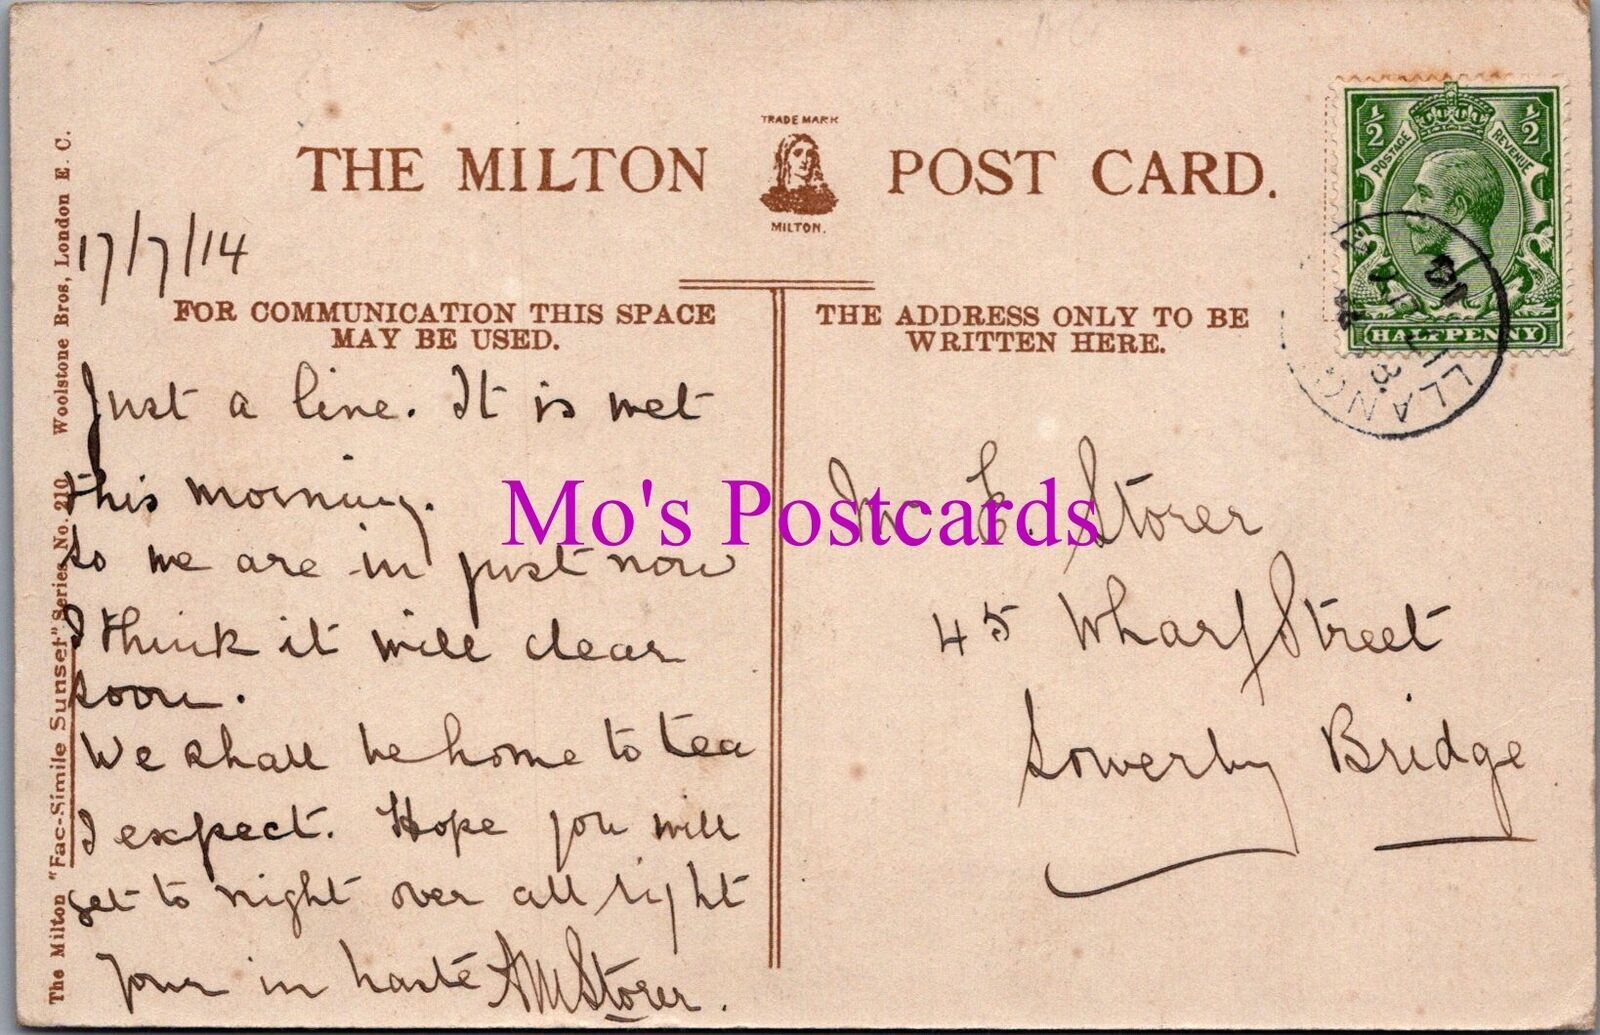 THE MILTON POST CARD.
TRADE MARK
MILTON.
½ ½
POSTAGE REVENUE
HALFPENNY
LLANG
17/7/14
FOR COMMUNICATION THIS SPACE
MAY BE USED.
THE ADDRESS ONLY TO BE
WRITTEN HERE.
Just a line. It is wet
this morning.
So we are in just now
I think it will clear
soon.
We shall be home to tea
I expect. Hope you will
get to night over all right
Your in haste AM Storer.
Mr E. Storer
45 Wharf Street
Sowerby Bridge
The Milton "Fac-Simile Sunset" Series No. 210 Woolstone Bros, London E. C.
Mo's Postcards